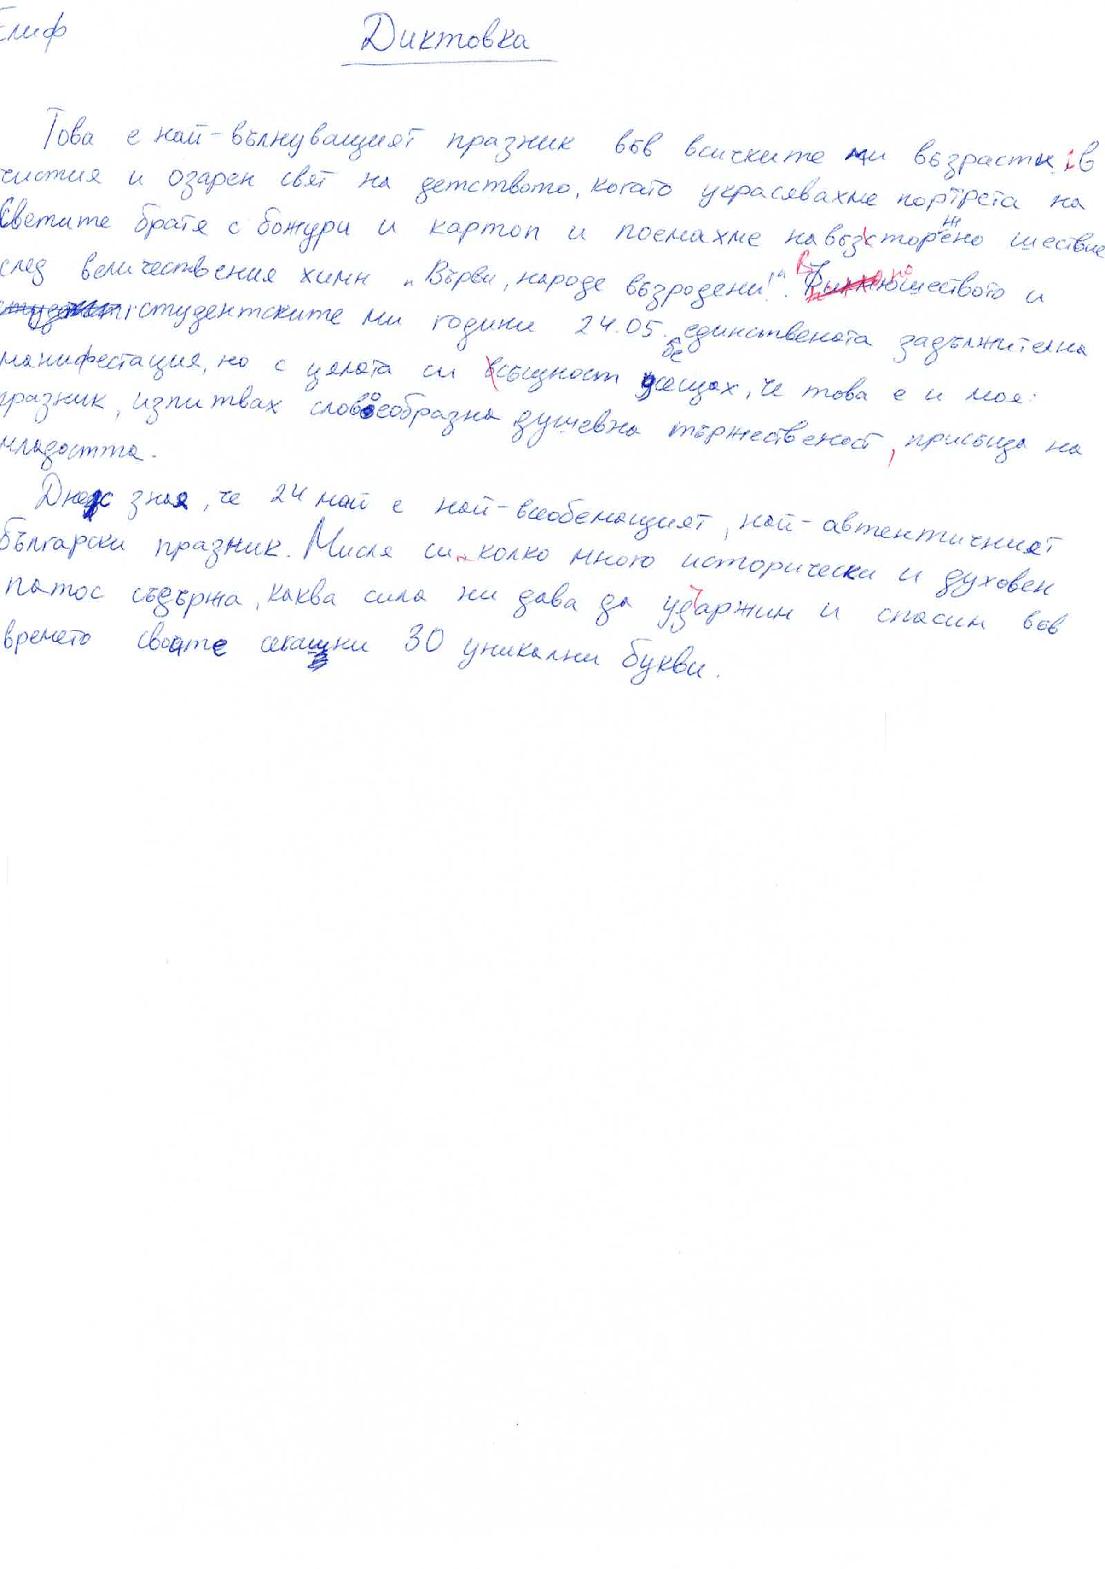 Елиф
Диктовка
Това е най-вълнуващият празник във всичките ми възрасти: в
чистия и озарен свят на детството, когато украсявахме портрета на
Светите братя с божури и картоп и поемахме навъзсторжено шествие
след величествения химн „Върви, народе възродени!“. В юношеството и
студентските ми години 24.05. бе единствената задължителна
манифестация, но с цялата си същност усещах, че това е и моя
празник, изпитвах словоеобразна душевна тържественост, присъща на
младостта.
Днес зная, че 24 май е най-всеобемащият, най-автентичният
български празник. Мисля си колко много исторически и духовен
патос съдържа, каква сила ни дава да удържим и спасим във
времето своите сегашни 30 уникални букви.